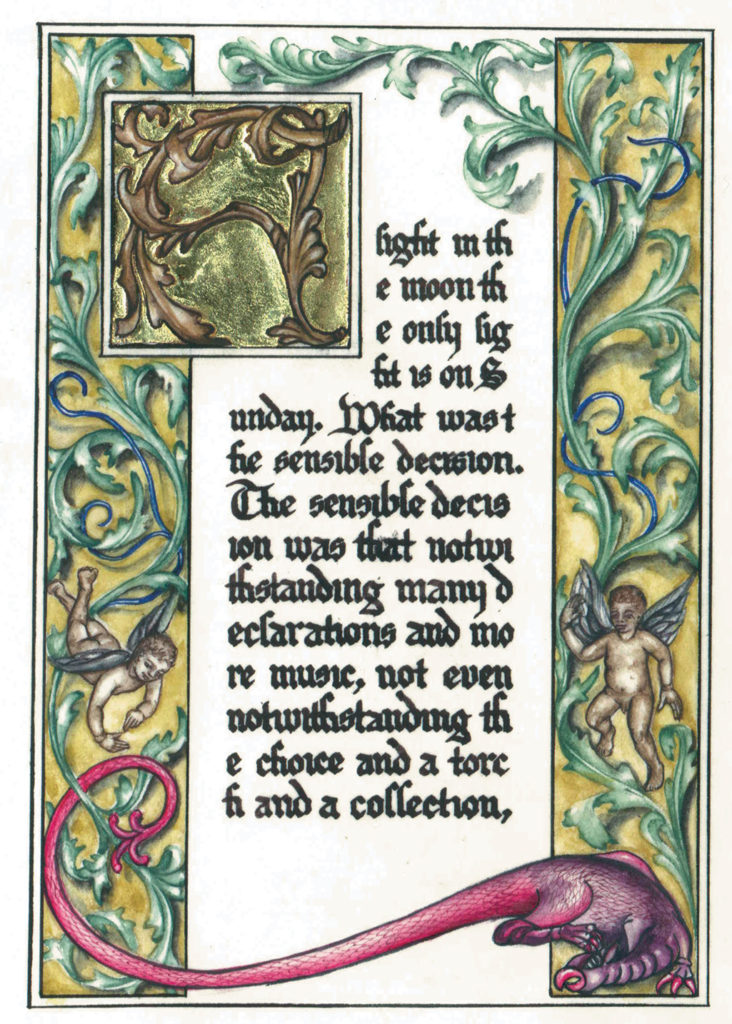 A light in th
e moon th
e only lig
ht is on S
unday. What was t
he sensible decision.
The sensible decis
ion was that notwi
thstanding many d
eclarations and mo
re music, not even
notwithstanding th
e choice and a torc
h and a collection,